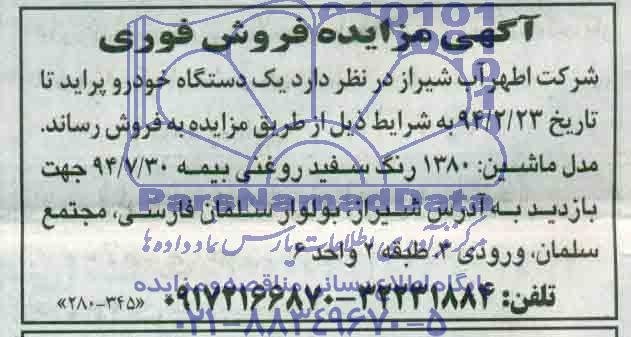 آگهی مزایده فروش فوری
شرکت اطهر آب شیراز در نظر دارد یک دستگاه خودرو پراید تا
تاریخ ۹۴/۲/۲۳ به شرایط ذیل از طریق مزایده به فروش رساند.
مدل ماشین: ۱۳۸۰ رنگ سفید روغنی بیمه ۹۴/۷/۳۰ جهت
ParsNamadData
بازدید به آدرس شیراز، بولوار سلمان فارسی، مجتمع
مرکز فرآوری اطلاعات پارس نماد داده ها
سلمان، ورودی ۳، طبقه ۲ واحد ۶
پایگاه اطلاع رسانی مناقصه و مزایده
تلفن: ۳۲۲۳۱۸۸۴-۰۹۱۷۲۱۶۶۸۷۰ «۲۸۰-۳۴۵»
۰۲۱-۸۸۳۴۹۶۷۰-۵